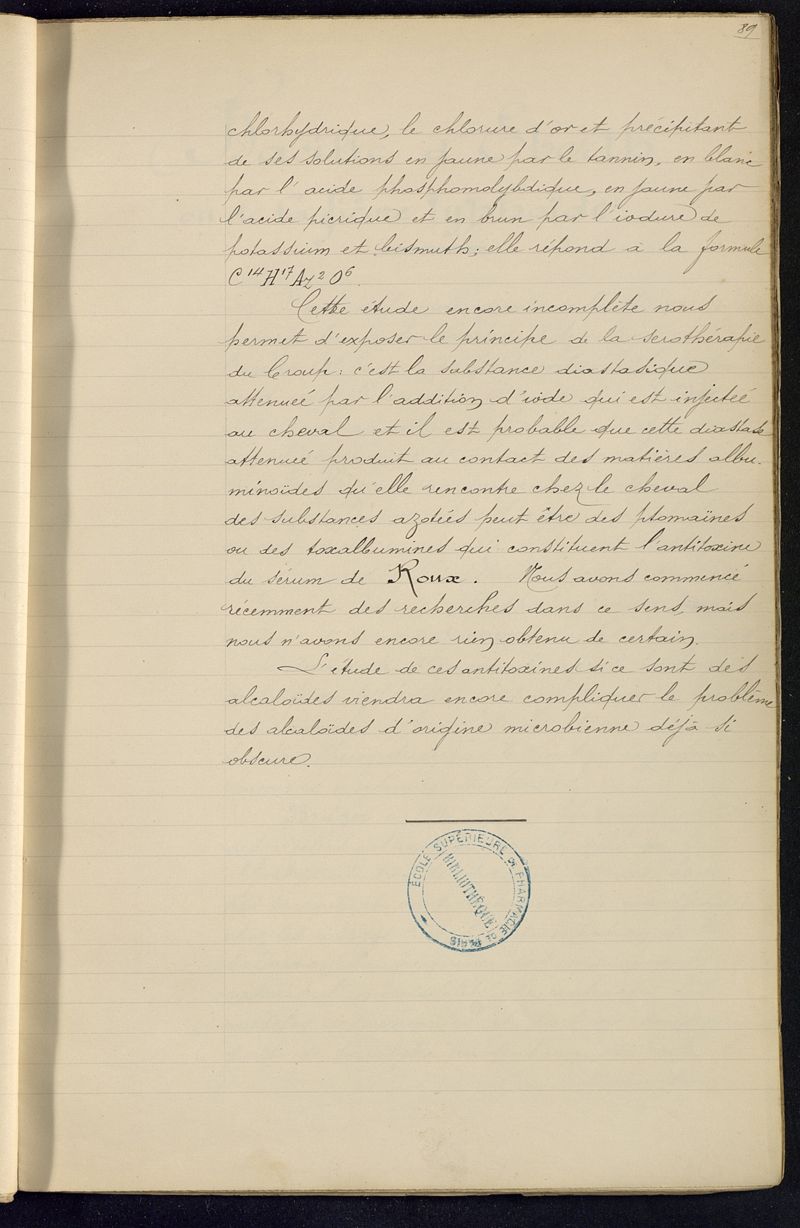 89
chlorhydrique, le chlorure d'or et précipitant
de ses solutions en jaune par le tannin, en blanc
par l'acide phosphomolybdique, en jaune par
l'acide picrique et en brun par l'iodure de
potassium et bismuth; elle répond à la formule
C¹⁴H¹⁷Az²O⁶.
Cette étude encore incomplète nous
permet d'exposer le principe de la serothérapie
du Croup: c'est la substance diastasique
attenueé par l'addition d'iode qui est injecteé
au cheval et il est probable que cette diastase
attenueé produit au contact des matières albu-
minoïdes qu'elle rencontre chez le cheval
des substances azotées peut être des ptomaïnes
ou des toxalbumines qui constituent l'antitoxine
du sérum de Roux. Nous avons commencé
récemment des recherches dans ce sens, mais
nous n'avons encore rien obtenu de certain.
L'étude de ces antitoxines si ce sont des
alcaloïdes viendra encore compliquer le problème
des alcaloïdes d'origine microbienne déjà si
obscure.
ÉCOLE SUPÉRIEURE DE PHARMACIE DE PARIS
BIBLIOTHÈQUE